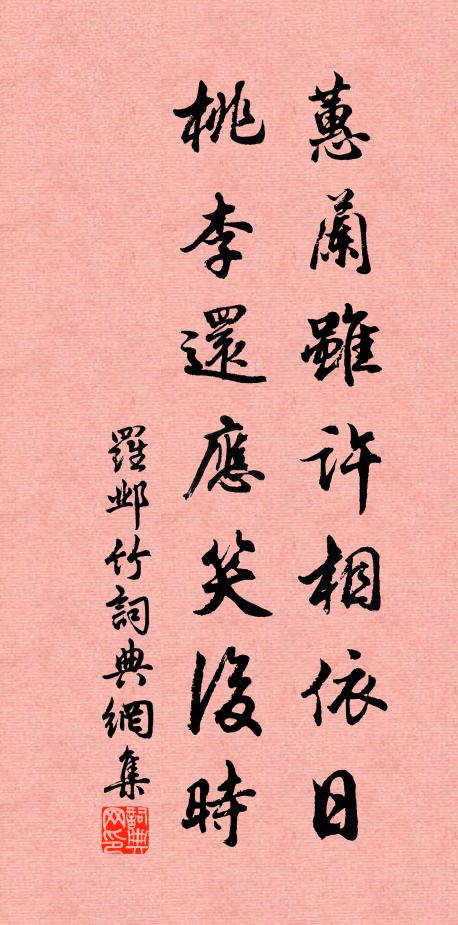 蕙蘭雖許相依日
桃李還應笑後時
羅鄴竹詞典網集
詞典
网印